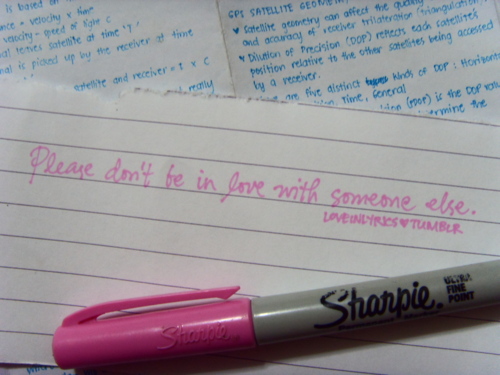 is based on
ance = velocity x time
velocity - speed of light c
nal leaves satellite at time 'T'
nal is picked up by the receiver at time
satellite and receiver = I x C
really
GPS SATELLITE GEOMETRY
♥ Satellite geometry can affect the quality
and accuracy of receiver trilateration (triangulation)
♥ Dilution of Precision (DOP) reflects each satellite's
position relative to the other satellites being accessed
by a receiver.
are five distinct kinds of DOP: Horizontal
Time, General
(PDOP) is the DOP value
determine the
Please don't be in love with someone else.
LOVEINLYRICS♥TUMBLR
Sharpie
Sharpie.
ULTRA
FINE
POINT